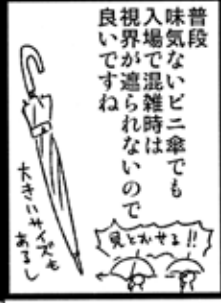 普段
味気ないビニ傘でも
入場で混雑時は
視界が遮られないので
良いですね
大きいサイズも
あるし
見とおせる!!